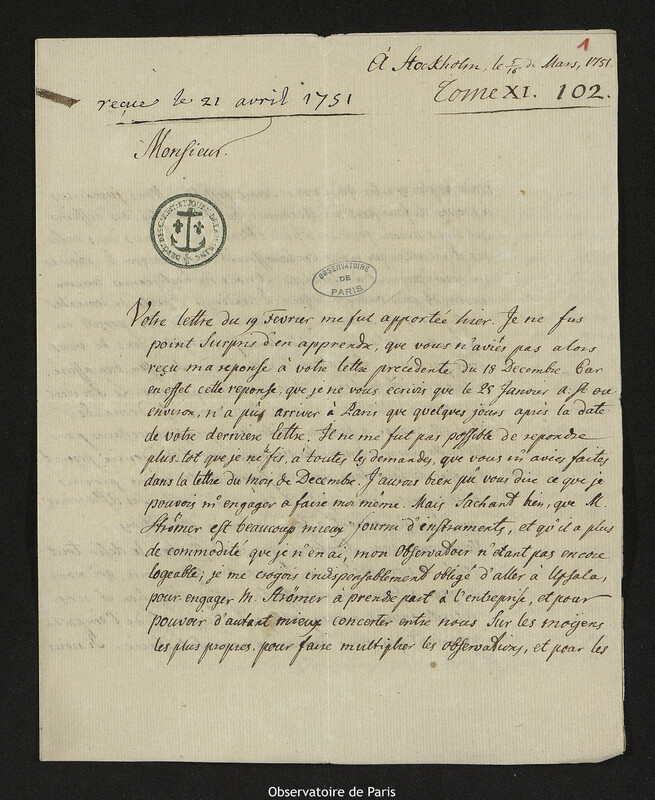 1
À Stockholm, le 5/16 de Mars, 1751
reçue le 21 avril 1751
Tome XI. 102.
Monsieur.
OBSERVATOIRE
DE
PARIS
Votre lettre du 19 Fevrier me fut apportée hier. Je ne fus
point surpris d'en apprendre, que vous n'aviés pas alors
reçu ma reponse à votre lettre précedente du 18 Decembre. Car
en effet cette reponse, que je ne vous écrivis que le 25 Janvier a. st ou
environ, n'a pûs arriver à Paris que quelques jours après la date
de votre derniere lettre. Il ne me fut pas possible de repondre
plus-tot que je ne fis, à toutes les demandes, que vous m'aviés faites
dans la lettre du mois de Decembre. J'aurois bien pû vous dire ce que je
pouvois m'engager à faire moi même. Mais sachant bien, que M.
Strömer est beaucoup mieux fourni d'enstruments, et qu'il a plus
de commodité que je n'en ai, mon Observatoir n'étant pas encore
logeable; je me croyois indispensablement obligé d'aller à Upsala,
pour engager M. Strömer à prendre part à l'entreprise, et pour
pouvoir d'autant mieux concerter entre nous sur les moyens
les plus propres, pour faire multiplier les observations, et pour les
Observatoire de Paris